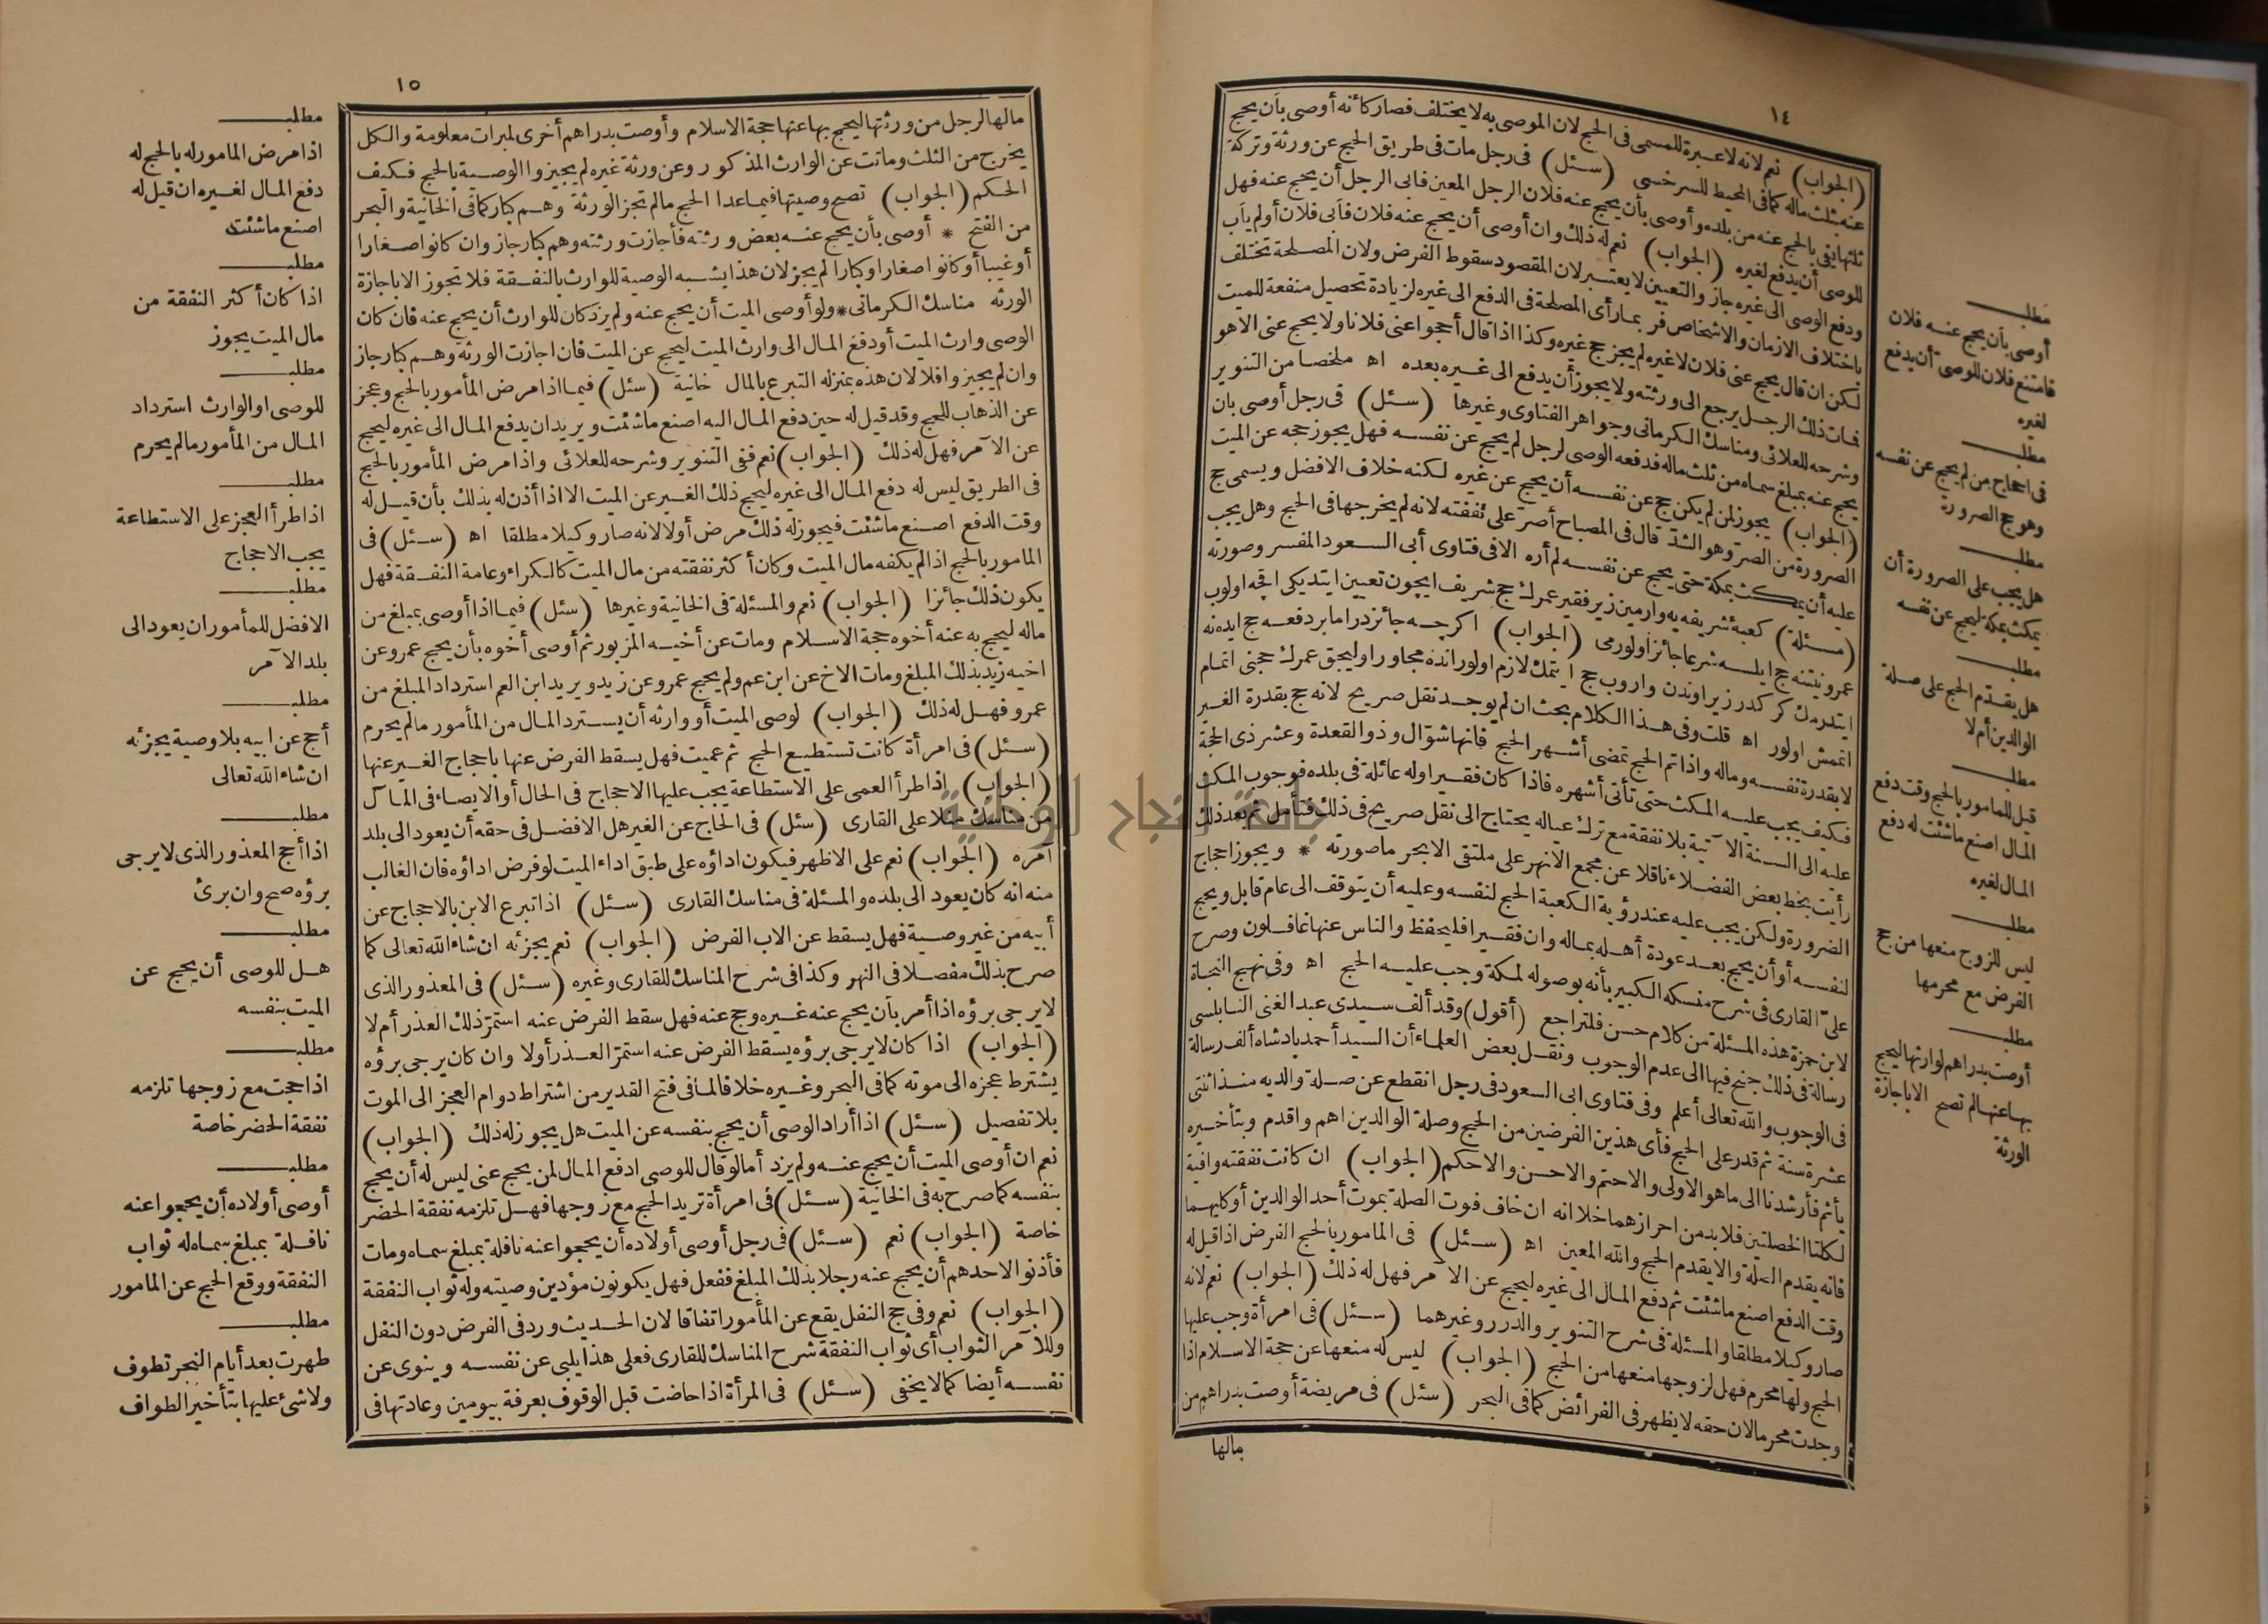 ١٤
(الجواب) نعم لانه لا عبرة للمسمى فى الحج لان الموصى به لا يختلف فصار كأنه أوصى بأن يحج
عنه بثلث ماله كما فى المحيط للسرخسى (سئل) فى رجل مات فى طريق الحج عن ورثة وتركة
ثلثها يفى بالحج عنه من بلده وأوصى بأن يحج عنه فلان الرجل المعين فابى الرجل أن يحج عنه فهل
للوصى أن يدفع لغيره (الجواب) نعم له ذلك وان أوصى أن يحج عنه فلان فأبى فلان أو لم يأب
ودفع الوصى الى غيره جاز والتعيين لا يعتبر لان المقصود سقوط الفرض ولان المصلحة تختلف
باختلاف الازمان والاشخاص فربما رأى المصلحة فى الدفع الى غيره لزيادة تحصيل منفعة للميت
لكن ان قال يحج عنى فلان لا غيره لم يجز حج غيره وكذا اذا قال أحجوا عنى فلانا ولا يحج عنى الا هو
فمات ذلك الرجل يرجع الى ورثته ولا يجوز أن يدفع الى غيره بعده اه ملخصا من التنوير
وشرحه للعلائى ومناسك الكرمانى وجواهر الفتاوى وغيرها (سئل) فى رجل أوصى بان
يحج عنه بمبلغ سماه من ثلث ماله فدفعه الوصى لرجل لم يحج عن نفسه فهل يجوز حجه عن الميت
(الجواب) يجوز لمن لم يكن حج عن نفسه أن يحج عن غيره لكنه خلاف الافضل ويسمى حج
الصرورة من الصر وهو الشد قال فى المصباح أصر على نفقته لانه لم يخرجها فى الحج وهل يجب
عليه أن يمكث بمكة حتى يحج عن نفسه لم أره الا فى فتاوى أبى السعود المفسر وصورته
(مسئلة) كعبه شريفه يه وارمين زير فقير عمرك حج شريف ايچون تعيين ايتديكى اقچه اولوب
عمرو نيتنه حج ايلسه شرعا جائز اولورمى (الجواب) اكرچه جائزدر اما بر دفعه حج ايده نه
ايتدرمك كركدر زيرا وندن واروب حج ايتمك لازم اولور انده مجاور اوليجق عمرك حجنى اتمام
اتمش اولور اه قلت وفى هذا الكلام بحث ان لم يوجد نقل صريح لانه حج بقدرة الغير
لا بقدرة نفسه وماله واذا تم الحج تمضى أشهر الحج فانها شوّال وذو القعدة وعشر ذى الحجة
فكيف يجب عليه المكث حتى تأتى أشهره فاذا كان فقيرا وله عائلة فى بلده فوجوب المكث
عليه الى السنة الآتية بلا نفقة مع ترك عياله يحتاج الى نقل صريح فى ذلك فتأمل ثم بعد ذلك
رأيت بخط بعض الفضلاء ناقلا عن مجمع الانهر على ملتقى الابحر ما صورته * ويجوز احجاج
الضرورة ولكن يجب عليه عند رؤية الكعبة الحج لنفسه وعليه أن يتوقف الى عام قابل ويحج
لنفسه أو أن يحج بعد عودة أهله بماله وان فقيرا فليحفظ والناس عنها غافلون وصرح
علىّ القارى فى شرح منسكه الكبير بأنه بوصوله لمكة وجب عليه الحج اه وفى نهج النجاة
لابن حمزة هذه المسئلة من كلام حسن فلتراجع (أقول) وقد ألف سيدى عبد الغنى النابلسى
رسالة فى ذلك جنح فيها الى عدم الوجوب ونقل بعض العلماء أن السيد أحمد بادشاه ألف رسالة
فى الوجوب والله تعالى أعلم وفى فتاوى ابى السعود فى رجل انقطع عن صلة والديه منذ اثنتى
عشرة سنة ثم قدر على الحج فأى هذين الفرضين من الحج وصلة الوالدين اهم واقدم وبتأخيره
يأثم فأرشدنا الى ما هو الاولى والاحتم والاحسن والاحكم (الجواب) ان كانت نفقته وافية
لكلتا الخصلتين فلا بد من احرازهما خلا انه ان خاف فوت الصلة بموت أحد الوالدين أو كليهما
فانه يقدم الصلة والا يقدم الحج والله المعين اه (سئل) فى المامور بالحج الفرض اذا قيل له
وقت الدفع اصنع ما شئت ثم دفع المال الى غيره ليحج عن الآمر فهل له ذلك (الجواب) نعم لانه
صار وكيلا مطلقا والمسئلة فى شرح التنوير والدرر وغيرهما (سئل) فى امرأة وجب عليها
الحج ولها محرم فهل لزوجها منعها من الحج (الجواب) ليس له منعها عن حجة الاسلام اذا
وجدت محرما لان حقه لا يظهر فى الفرائض كما فى البحر (سئل) فى مريضة أوصت بدراهم من
مالها
مطلب
أوصى بأن يحج عنه فلان
فامتنع فلان للوصى أن يدفع
لغيره
مطلب
فى احجاج من لم يحج عن نفسه
وهو حج الصرورة
مطلب
هل يجب على الصرورة أن
يمكث بمكة ليحج عن نفسه
مطلب
هل يقدّم الحج على صلة
الوالدين أم لا
مطلب
قيل للمامور بالحج وقت دفع
المال اصنع ما شئت له دفع
المال لغيره
مطلب
ليس للزوج منعها من حج
الفرض مع محرمها
مطلب
أوصت بدراهم لوارثها ليحج
بها عنها لم تصح الا باجازة
الورثة
١٥
مالها لرجل من ورثتها ليحج بها عنها حجة الاسلام وأوصت بدراهم أخرى لمبرات معلومة والكل
يخرج من الثلث وماتت عن الوارث المذكور وعن ورثة غيره لم يجيزوا الوصية بالحج فكيف
الحكم (الجواب) تصح وصيتها فيما عدا الحج ما لم تجز الورثة وهم كبار كما فى الخانية والبحر
من الفتح * أوصى بأن يحج عنه بعض ورثته فأجازت ورثته وهم كبار جاز وان كانوا صغارا
أو غيبا أو كانوا صغارا وكبارا لم يجز لان هذا يشبه الوصية للوارث بالنفقة فلا تجوز الا باجازة
الورثه مناسك الكرمانى * ولو أوصى الميت أن يحج عنه ولم يزد كان للوارث أن يحج عنه فان كان
الوصى وارث الميت أو دفع المال الى وارث الميت ليحج عن الميت فان اجازت الورثة وهم كبار جاز
وان لم يجيزوا فلا لان هذه بمنزله التبرع بالمال خانية (سئل) فيما اذا مرض المأمور بالحج وعجز
عن الذهاب للحج وقد قيل له حين دفع المال اليه اصنع ما شئت ويريد ان يدفع المال الى غيره ليحج
عن الآمر فهل له ذلك (الجواب) نعم ففى التنوير وشرحه للعلائى واذا مرض المأمور بالحج
فى الطريق ليس له دفع المال الى غيره ليحج ذلك الغير عن الميت الا اذا أذن له بذلك بأن قيل له
وقت الدفع اصنع ما شئت فيجوز له ذلك مرض أولا لانه صار وكيلا مطلقا اه (سئل) فى
المامور بالحج اذا لم يكفه مال الميت وكان أكثر نفقته من مال الميت كالكراء وعامة النفقة فهل
يكون ذلك جائزا (الجواب) نعم والمسئلة فى الخانية وغيرها (سئل) فيما اذا أوصى بمبلغ من
ماله ليحج به عنه أخوه حجة الاسلام ومات عن أخيه المزبور ثم أوصى أخوه بأن يحج عمرو عن
اخيه زيد بذلك المبلغ ومات الاخ عن ابن عم ولم يحج عمرو عن زيد ويريد ابن العم استرداد المبلغ من
عمرو فهل له ذلك (الجواب) لوصى الميت أو وارثه أن يسترد المال من المأمور ما لم يحرم
(سئل) فى امرأة كانت تستطيع الحج ثم عميت فهل يسقط الفرض عنها باحجاج الغير عنها
(الجواب) اذا طرأ العمى على الاستطاعة يجب عليها الاحجاج فى الحال أو الايصاء فى المآل
من مناسك منلا على القارى (سئل) فى الحاج عن الغير هل الافضل فى حقه أن يعود الى بلد
آمره (الجواب) نعم على الاظهر فيكون اداؤه على طبق اداء الميت لو فرض اداؤه فان الغالب
منه انه كان يعود الى بلده والمسئلة فى مناسك القارى (سئل) اذا تبرع الابن بالاحجاج عن
أبيه من غير وصية فهل يسقط عن الاب الفرض (الجواب) نعم يجزئه ان شاء الله تعالى كما
صرح بذلك مفصلا فى النهر وكذا فى شرح المناسك للقارى وغيره (سئل) فى المعذور الذى
لا يرجى برؤه اذا أمر بأن يحج عنه غيره وحج عنه فهل سقط الفرض عنه استمرّ ذلك العذر أم لا
(الجواب) اذا كان لا يرجى برؤه يسقط الفرض عنه استمرّ العذر أولا وان كان يرجى برؤه
يشترط عجزه الى موته كما فى البحر وغيره خلافا لما فى فتح القدير من اشتراط دوام العجز الى الموت
بلا تفصيل (سئل) اذا أراد الوصى أن يحج بنفسه عن الميت هل يجوز له ذلك (الجواب)
نعم ان أوصى الميت أن يحج عنه ولم يزد أما لو قال للوصى ادفع المال لمن يحج عنى ليس له أن يحج
بنفسه كما صرح به فى الخانية (سئل) فى امرأة تريد الحج مع زوجها فهل تلزمه نفقة الحضر
خاصة (الجواب) نعم (سئل) فى رجل أوصى أولاده أن يحجوا عنه نافلة بمبلغ سماه ومات
فأذنوا لاحدهم أن يحج عنه رجلا بذلك المبلغ ففعل فهل يكونون مؤدين وصيته وله ثواب النفقة
(الجواب) نعم وفى حج النفل يقع عن المأمور اتفاقا لان الحديث ورد فى الفرض دون النفل
وللآمر الثواب أى ثواب النفقة شرح المناسك للقارى فعلى هذا يلبى عن نفسه وينوى عن
نفسه أيضا كما لا يخفى (سئل) فى المرأة اذا حاضت قبل الوقوف بعرفة بيومين وعادتها فى
مطلب
اذا مرض المامور له بالحج له
دفع المال لغيره ان قيل له
اصنع ما شئت
مطلب
اذا كان أكثر النفقة من
مال الميت يجوز
مطلب
للوصى او الوارث استرداد
المال من المأمور ما لم يحرم
مطلب
اذا طرأ العجز على الاستطاعة
يجب الاحجاج
مطلب
الافضل للمأمور ان يعود الى
بلد الآمر
مطلب
أحج عن ابيه بلا وصية يجزئه
ان شاء الله تعالى
مطلب
اذا أحج المعذور الذى لا يرجى
برؤه صح وان برئ
مطلب
هل للوصى أن يحج عن
الميت بنفسه
مطلب
اذا حجت مع زوجها تلزمه
نفقة الحضر خاصة
مطلب
أوصى أولاده أن يحجوا عنه
نافلة بمبلغ سماه له ثواب
النفقة ووقع الحج عن المامور
مطلب
طهرت بعد أيام النحر تطوف
ولا شئ عليها بتأخير الطواف
جامعة النجاح الوطنية